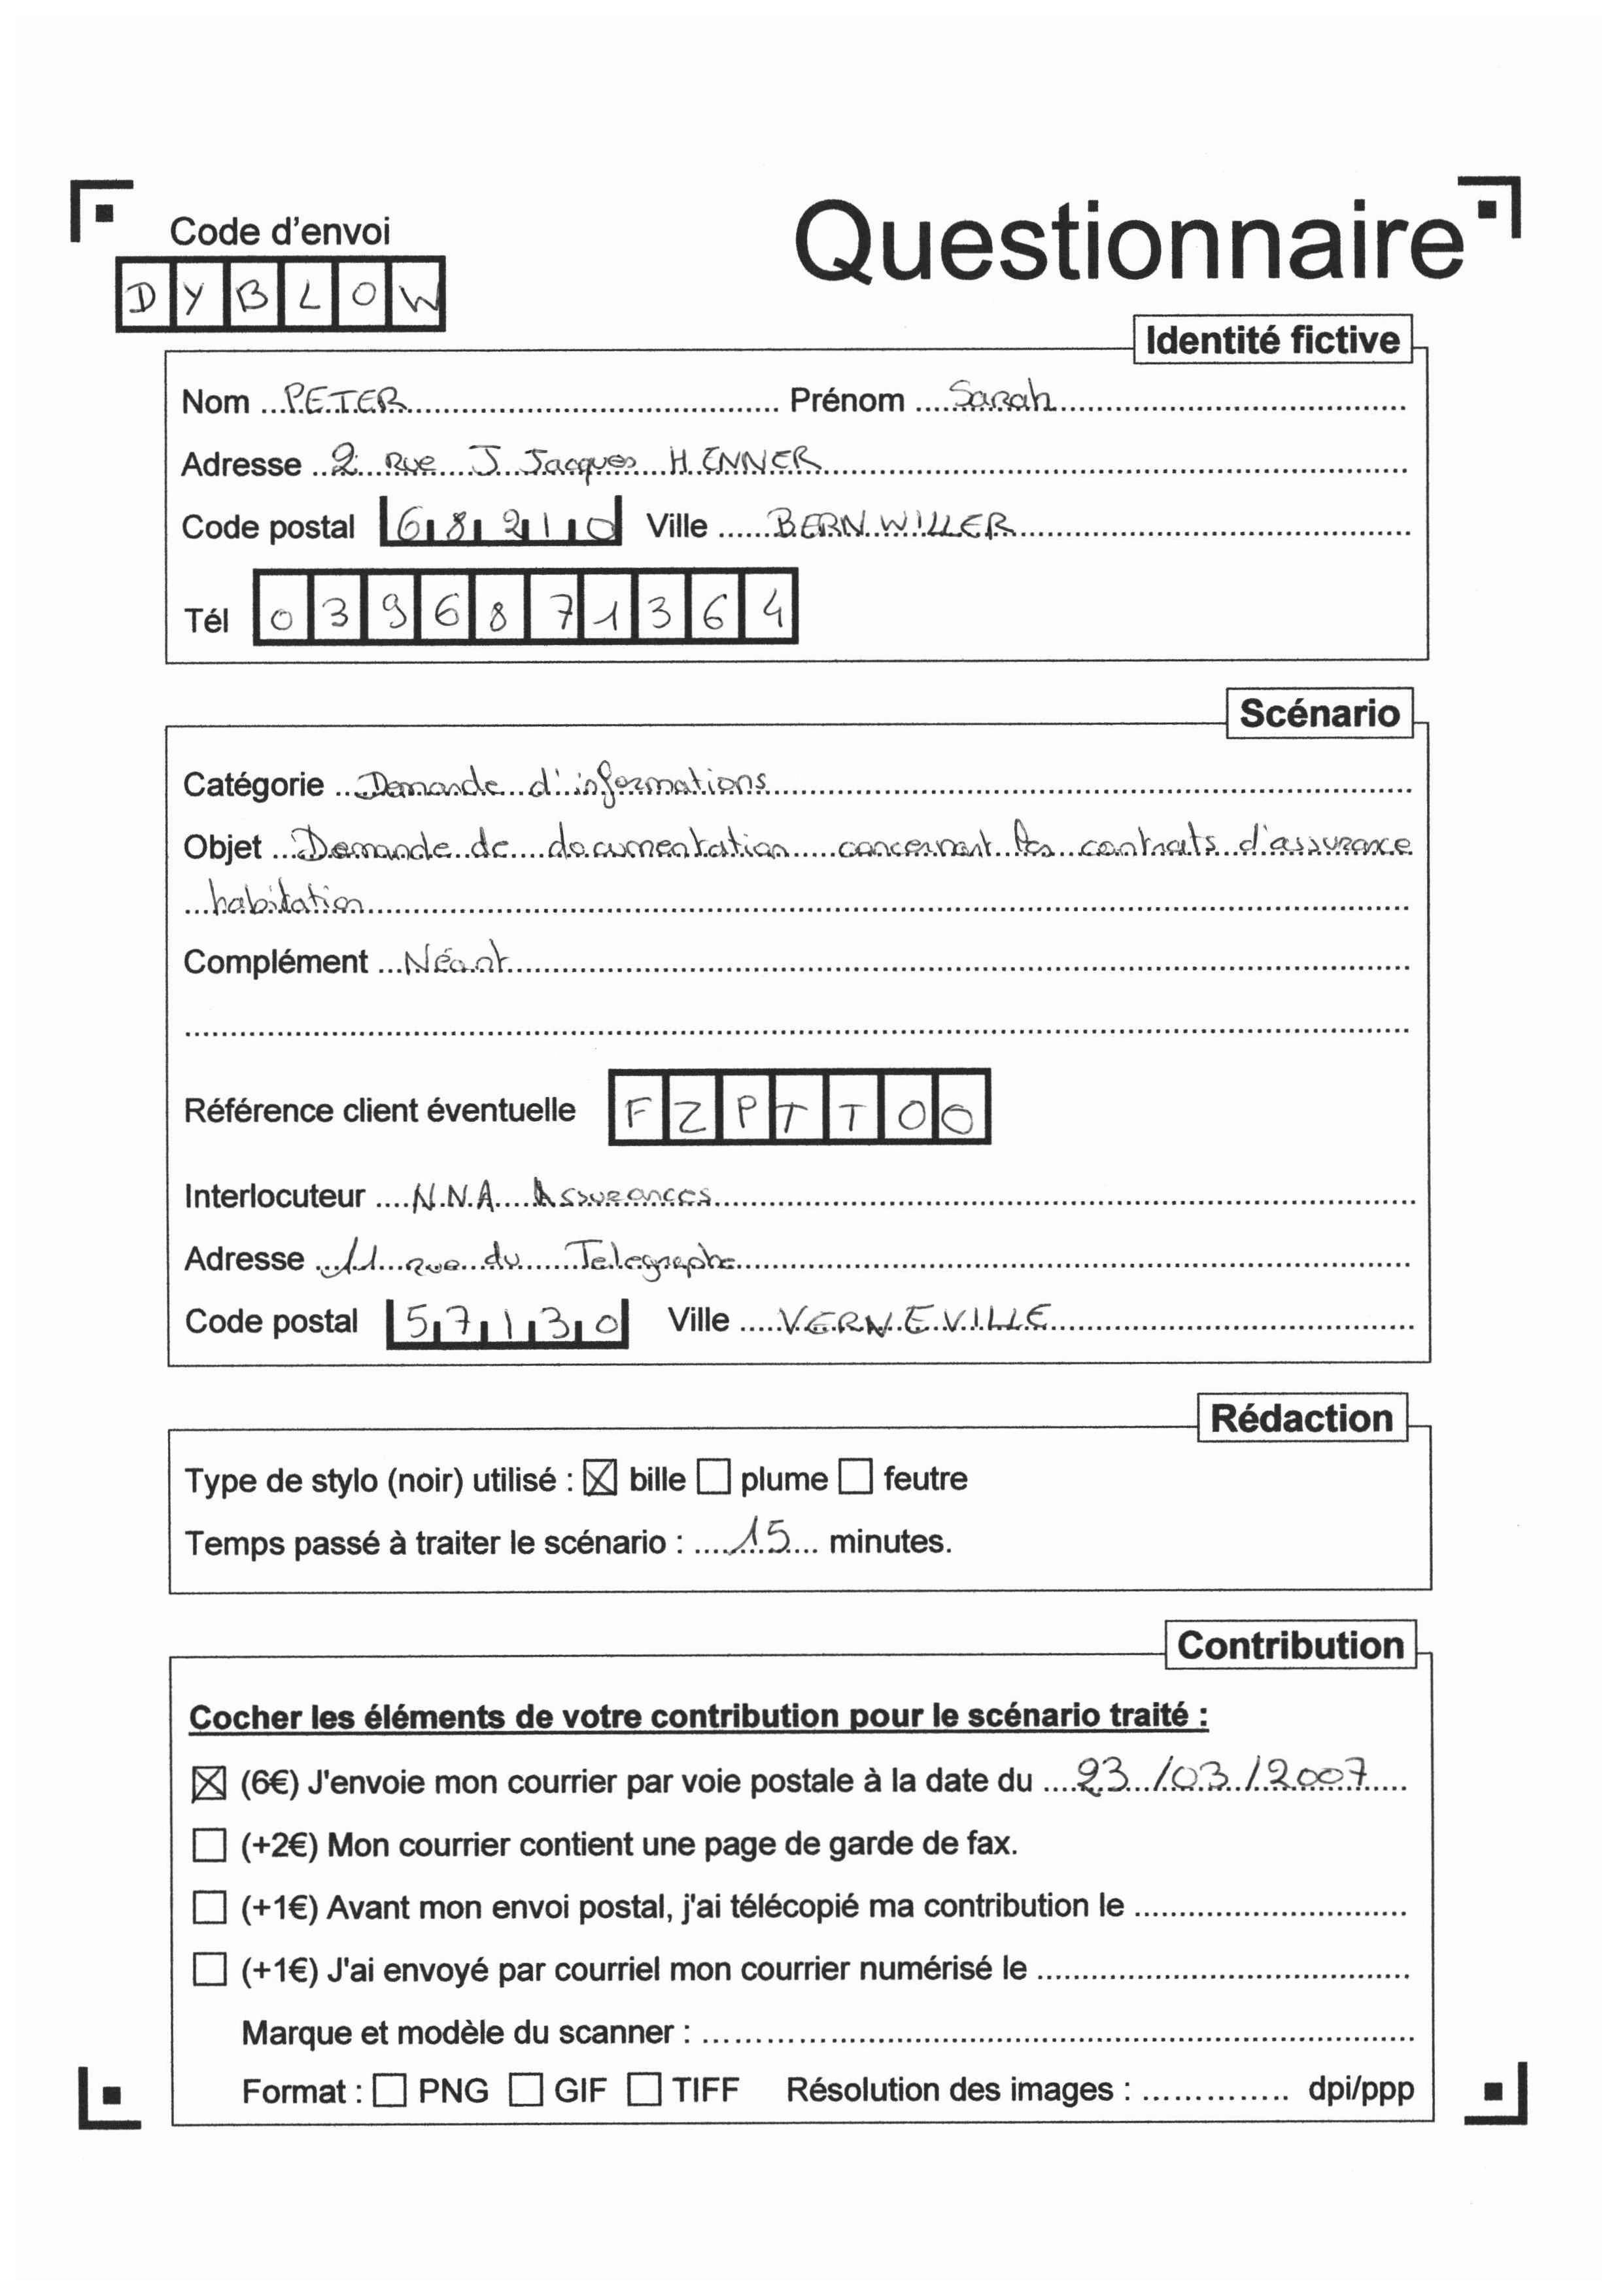 Code d'envoi
Questionnaire
DYBLOW
Identité fictive
Nom PETER Prénom Sarah
Adresse 2 Rue J Jacques HENNER
Code postal 68210 Ville BERNWILLER
Tél 0396871364
Scénario
Catégorie Demande d'informations
Objet Demande de documentation concernant les contrats d'assurance
habitation
Complément Néant
Référence client éventuelle FZPTT00
Interlocuteur NNA Assurances
Adresse 11 rue du Telegraphe
Code postal 57130 Ville VERNEVILLE
Rédaction
Type de stylo (noir) utilisé : ☒ bille ☐ plume ☐ feutre
Temps passé à traiter le scénario : 15 minutes.
Contribution
Cocher les éléments de votre contribution pour le scénario traité :
☒ (6€) J'envoie mon courrier par voie postale à la date du 23/03/2007
☐ (+2€) Mon courrier contient une page de garde de fax.
☐ (+1€) Avant mon envoi postal, j'ai télécopié ma contribution le
☐ (+1€) J'ai envoyé par courriel mon courrier numérisé le
Marque et modèle du scanner :
Format : ☐ PNG ☐ GIF ☐ TIFF Résolution des images : dpi/ppp